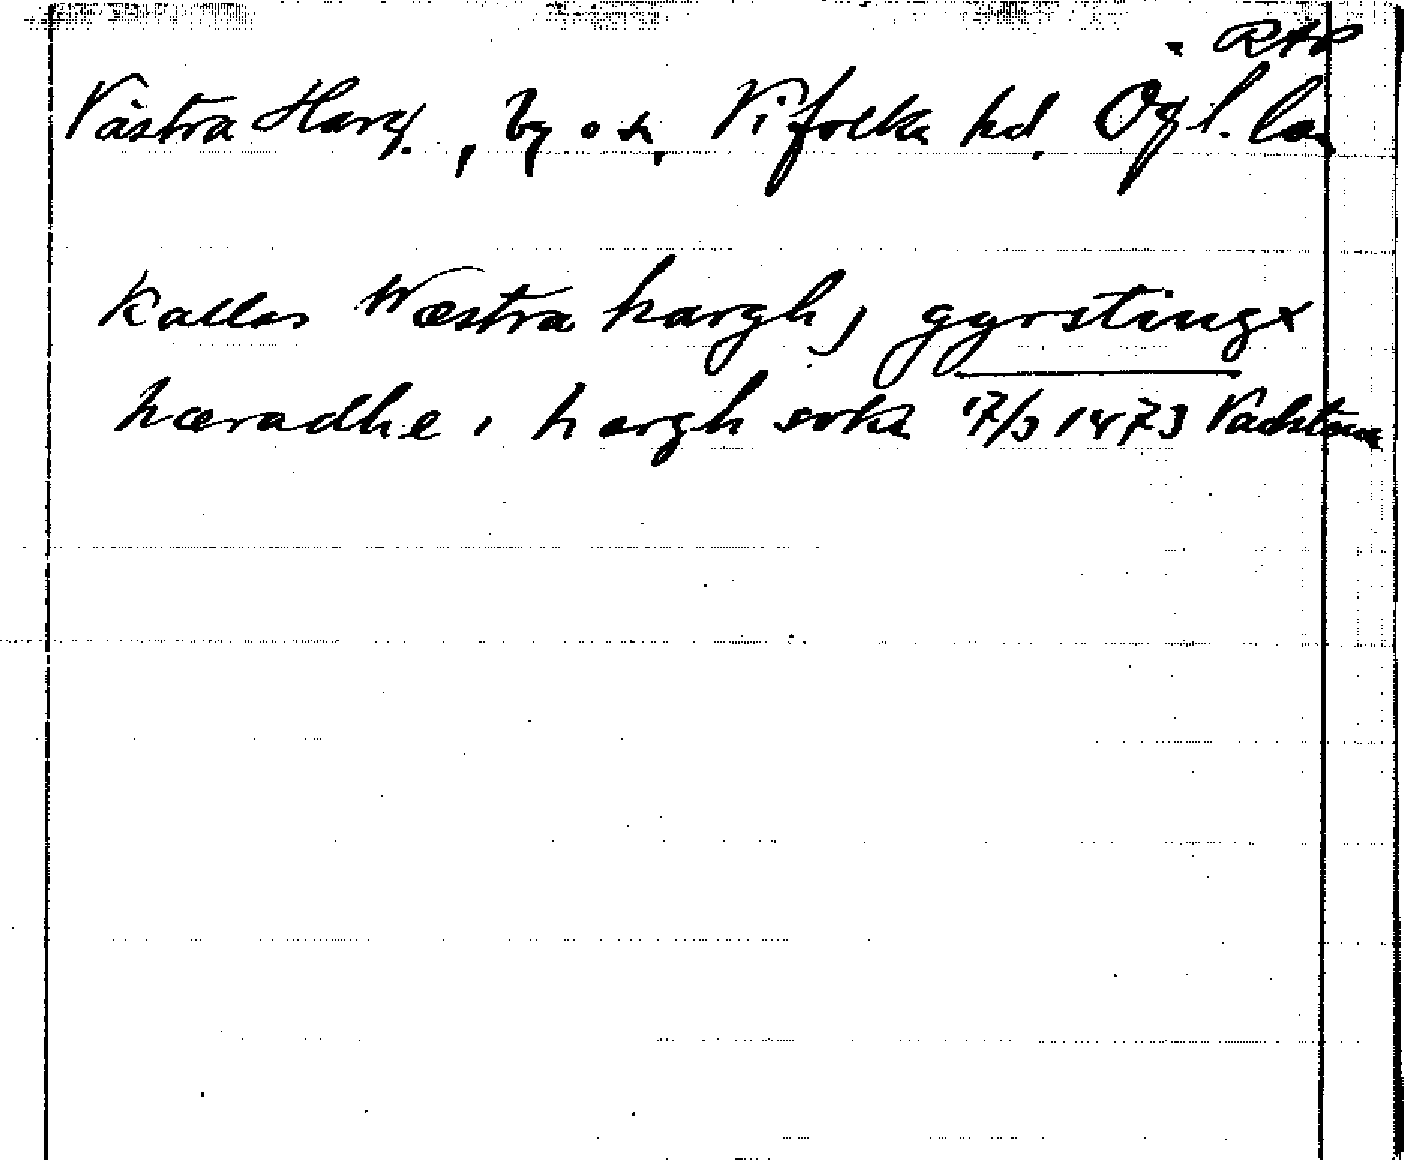 RAP
Västra Harg, by o sn, Vifolka hd, Ögl. län
kallas Wæstra hargh j gyrstingx
hæradhe i hargh sokn 17/3 1473 Vadstena